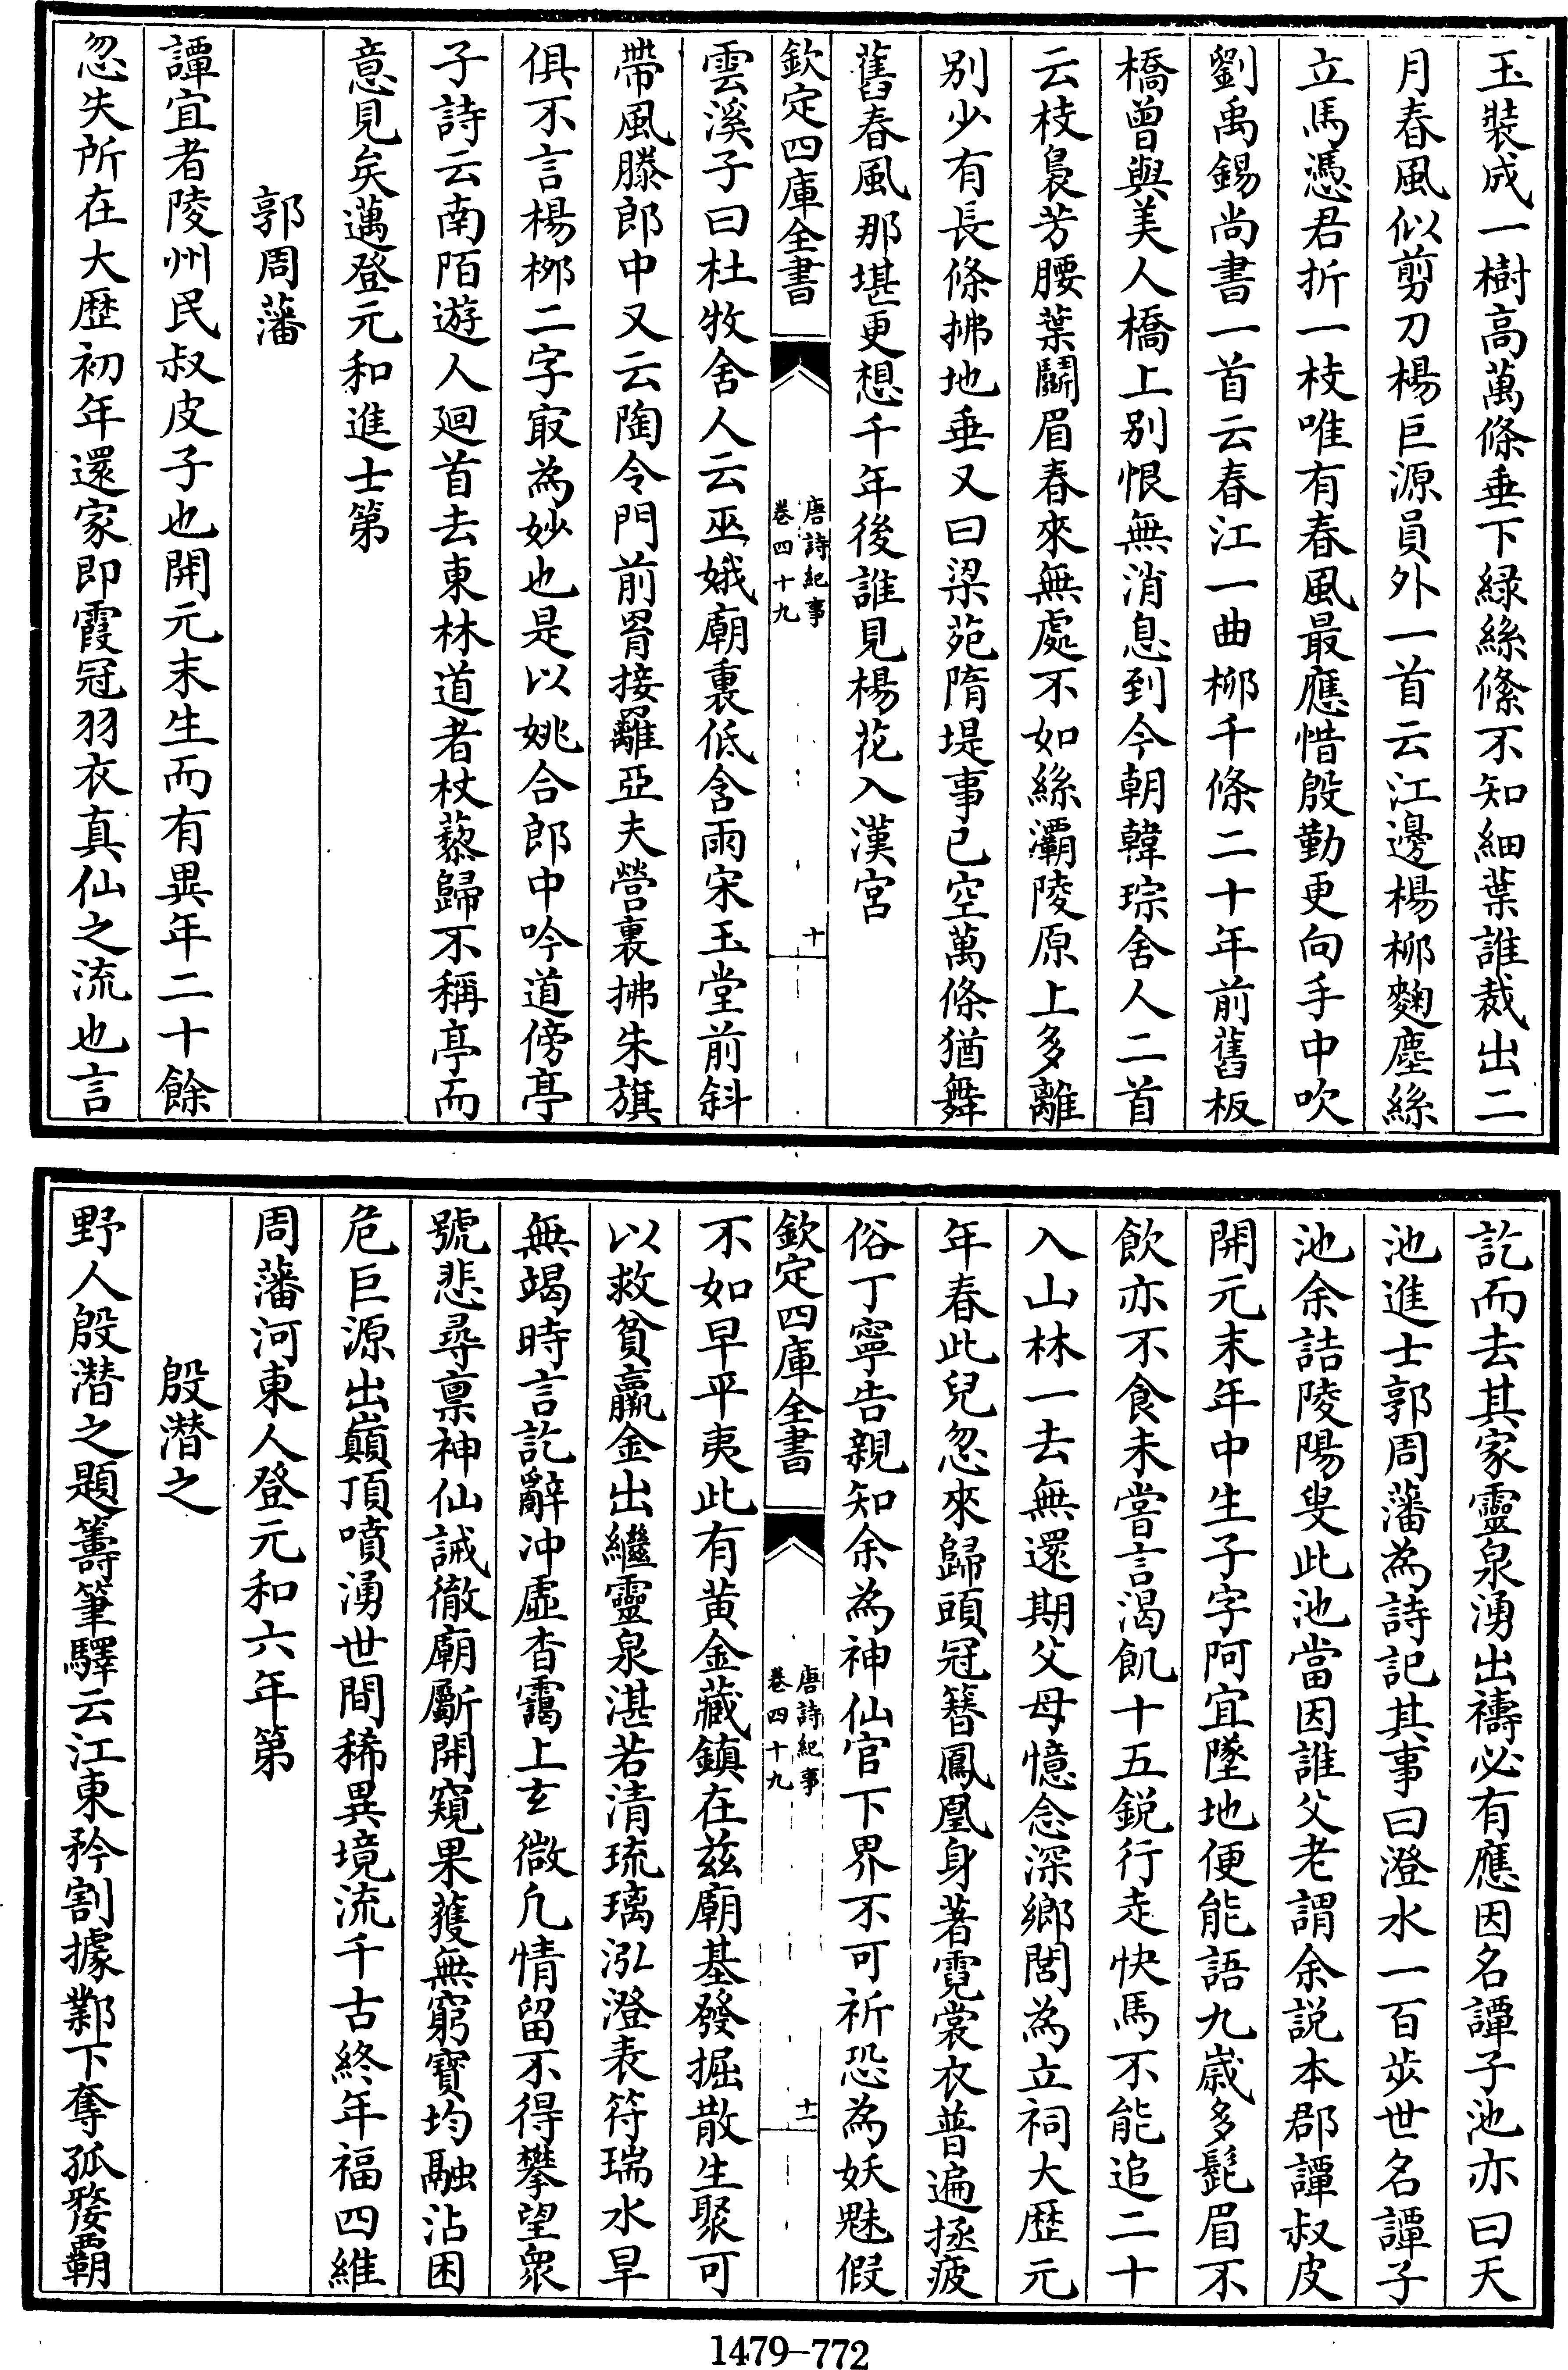 玉裝成一樹高萬條垂下緑絲絛不知細葉誰裁出二
月春風似剪刀楊巨源員外一首云江邊楊柳麴塵絲
立馬憑君折一枝唯有春風最應惜殷勤更向手中吹
劉禹錫尚書一首云春江一曲柳千條二十年前舊板
橋曾與美人橋上别恨無消息到今朝韓琮舍人二首
云枝裊芳腰葉鬭眉春來無處不如絲灞陵原上多離
别少有長條拂地垂又曰梁苑隋堤事已空萬條猶舞
舊春風那堪更想千年後誰見楊花入漢宫
欽定四庫全書
唐詩紀事
卷四十九
十
雲溪子曰杜牧舍人云巫娥廟裏低含雨宋玉堂前斜
帶風滕郎中又云陶令門前罥接䍦亞夫營裏拂朱旗
俱不言楊柳二字㝡為妙也是以姚合郎中吟道傍亭
子詩云南陌遊人廻首去東林道者杖藜歸不稱亭而
意見矣邁登元和進士第
郭周藩
譚宜者陵州民叔皮子也開元末生而有異年二十餘
忽失所在大歴初年還家即霞冠羽衣真仙之流也言
訖而去其家靈泉湧出禱必有應因名譚子池亦曰天
池進士郭周藩為詩記其事曰澄水一百步世名譚子
池余詰陵陽叟此池當因誰父老謂余説本郡譚叔皮
開元末年中生子字阿宜墜地便能語九歲多髭眉不
飲亦不食未嘗言渴飢十五鋭行走快馬不能追二十
入山林一去無還期父母憶念深鄉閭為立祠大歴元
年春此兒忽來歸頭冠簪鳳凰身著霓裳衣普遍拯疲
俗丁寧告親知余為神仙官下界不可祈恐為妖魅假
欽定四庫全書
唐詩紀事
卷四十九
十一
不如早平夷此有黄金藏鎮在兹廟基發掘散生聚可
以救貧羸金出繼靈泉湛若清琉璃泓澄表符瑞水旱
無竭時言訖辭冲虚杳靄上玄微凢情留不得攀望衆
號悲尋禀神仙誡徹廟斸開窺果獲無窮寶均融沾困
危巨源出巔頂噴湧世間稀異境流千古終年福四維
周藩河東人登元和六年第
殷潜之
野人殷潜之題籌筆驛云江東矜割據鄴下奪孤嫠霸
1479-772